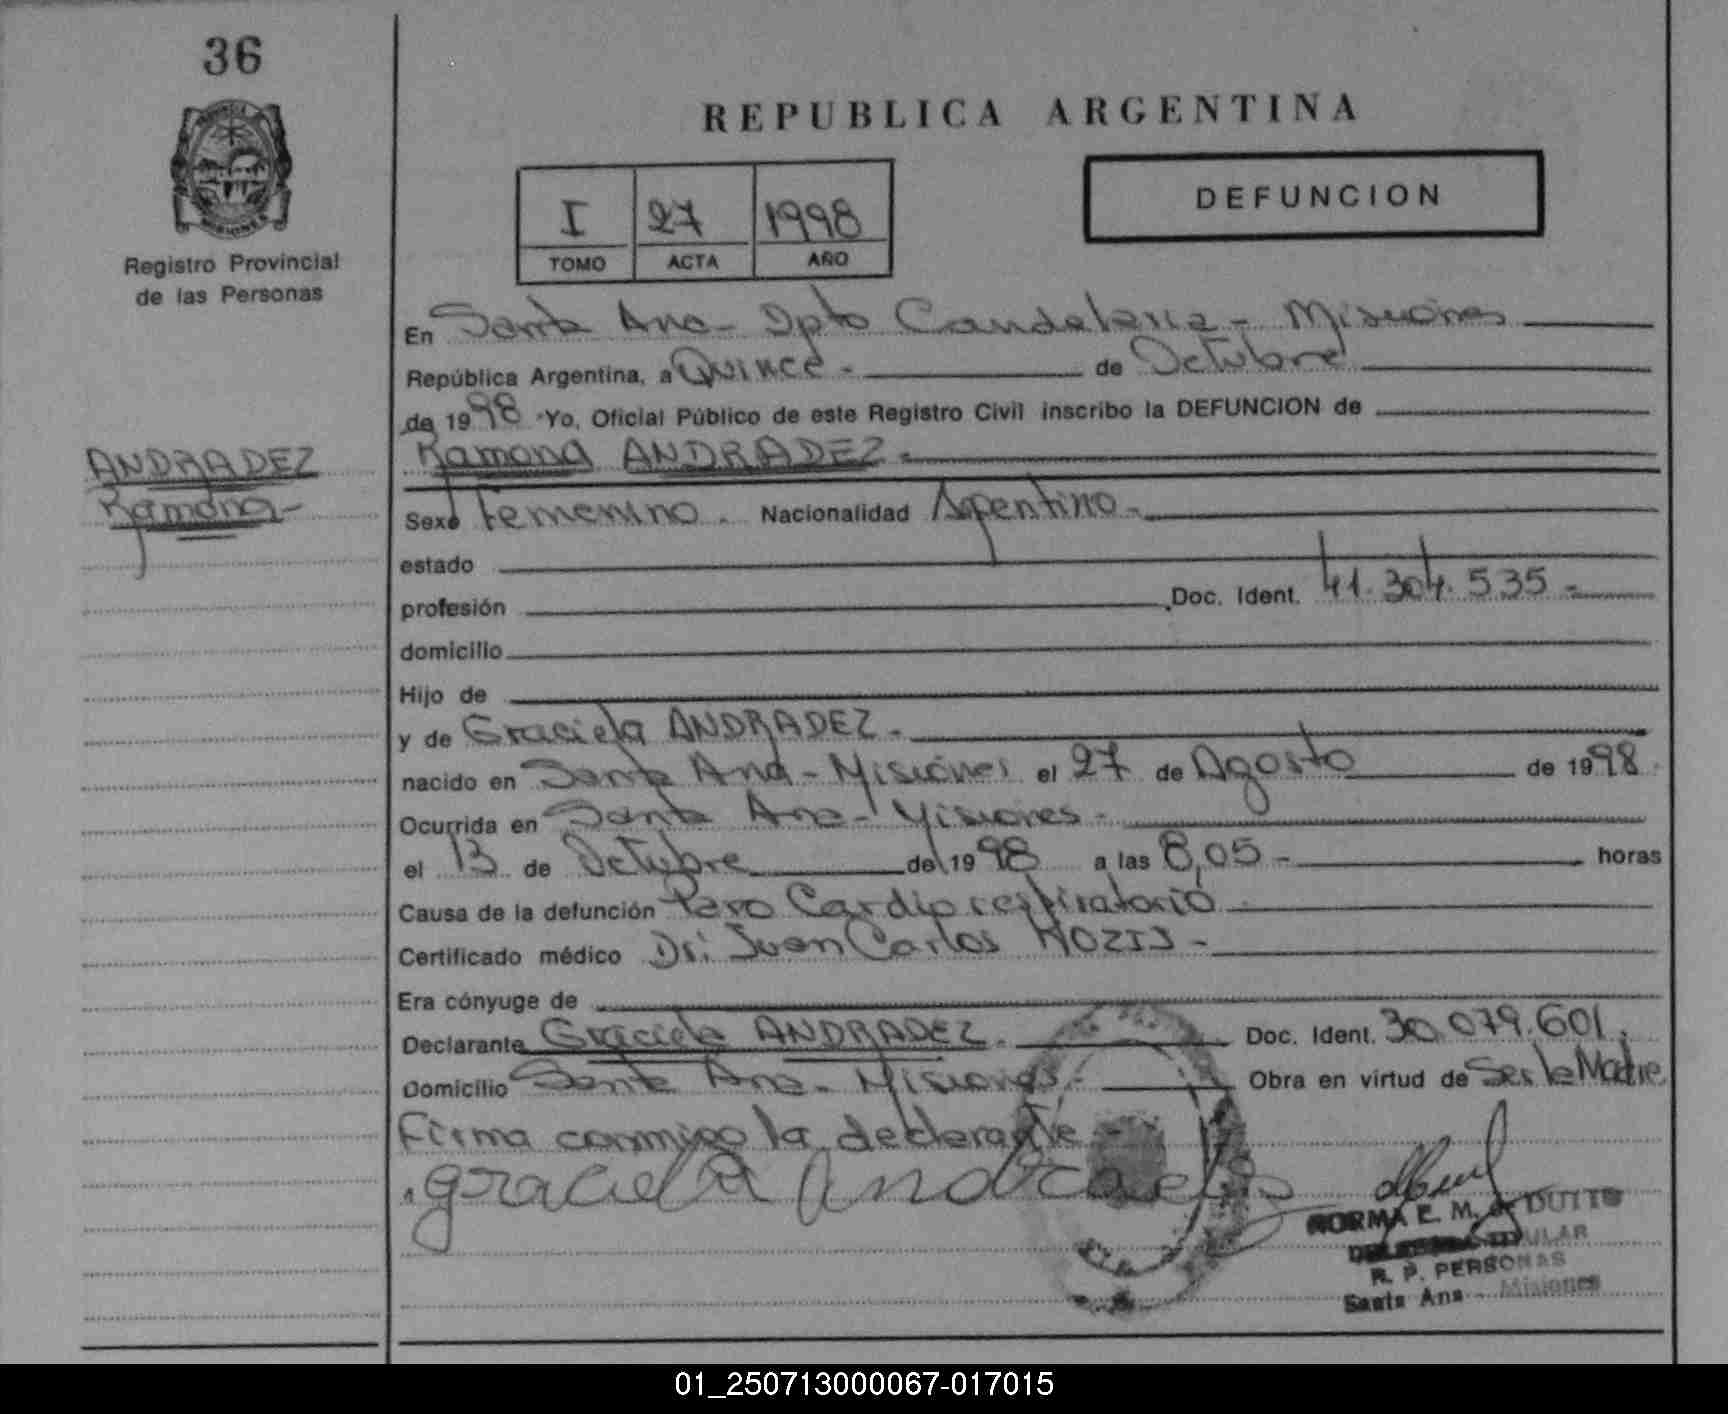 36
Registro Provincial
de las Personas
ANDRADEZ
Ramona-
REPUBLICA ARGENTINA
I 27 1998
TOMO ACTA AÑO
DEFUNCION
En Santa Ana- Dpto Candelaria - Misiones
República Argentina, a Quince - de Octubre
de 1998 Yo, Oficial Público de este Registro Civil inscribo la DEFUNCION de
Ramona ANDRADEZ -
Sexo Femenino. Nacionalidad Argentino -
estado
profesión Doc. Ident. 41.304.535 -
domicilio
Hijo de
y de Graciela ANDRADEZ -
nacido en Santa Ana - Misiones el 27 de Agosto de 1998
Ocurrida en Santa Ana - Misiones -
el 13 de Octubre de 1998 a las 8,05 - horas
Causa de la defunción Paro Cardio respiratorio
Certificado médico Dr: Juan Carlos -
Era cónyuge de
Declarante Graciela ANDRADEZ - Doc. Ident. 30.079.601.
Domicilio Santa Ana - Misiones - Obra en virtud de Ser la Madre
Firma conmigo la declarante -
graciela Andra
NORMA E. M. de DUTTO
TITULAR
R. P. PERSONAS
Santa Ana - Misiones
01_250713000067-017015